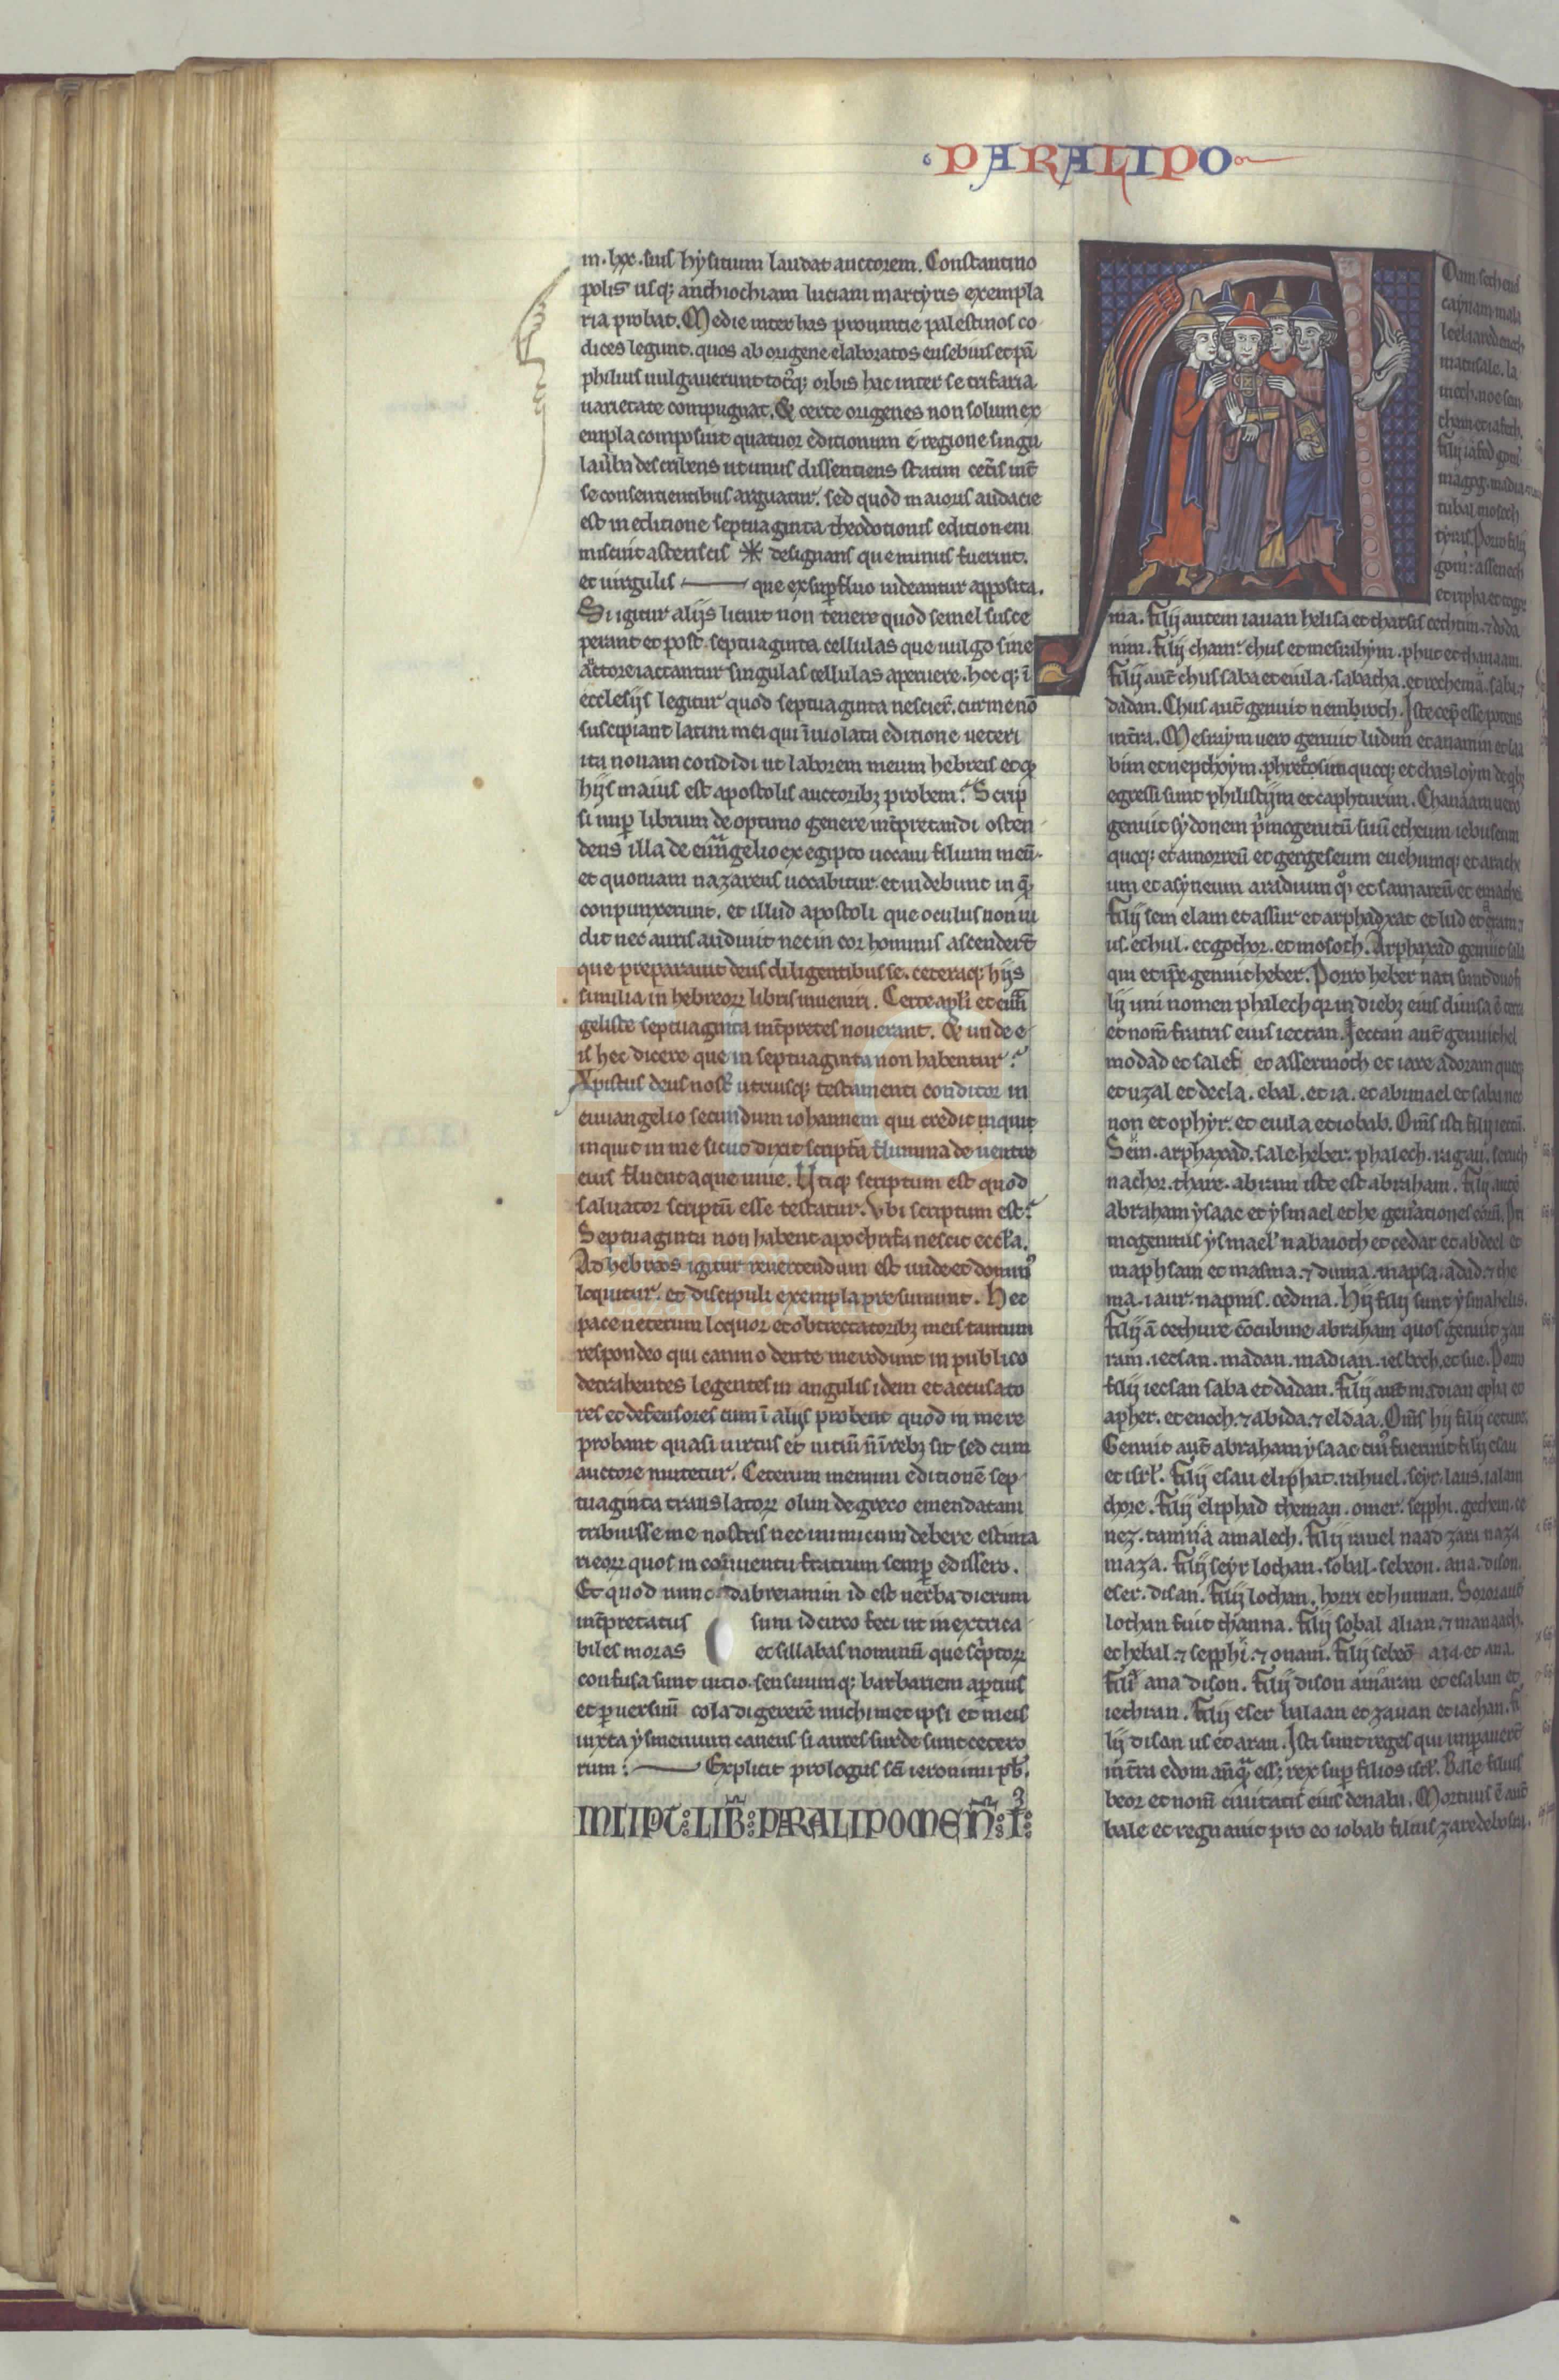 PARALIPO
m. lxx. suis hysitium laudat auctorem. Constantino
polis usq; anthiochiam luciani martyris exempla
ria probat. Medie inter has prouintie palestinos co
dices legunt. quos ab origene elaboratos eusebius et pā
philius uulgauerunt totꝰq; orbis hac inter se trifaria
uarietate compugnat. & certe origenes non solum ex
empla composuit quatuor editionum e regione singu
la uba describens ut unus dissentiens statim cetis int̄
se consentientibus arguatur. sed quod maioris audacie
est in editione septuaginta theodotionis editionem
miscuit asteriscis ※ designans que minus fuerint.
et uirgulis — que ex supfluo uideantur apposita.
Si igitur alijs licuit non tenere quod semel susce
perant et post septuaginta cellulas que uulgo sine
actore iactantur singulas cellulas aperuere. hoc q; ī
ecclesijs legitur quod septuaginta nescier̄. cur me nō
suscipiant latini mei qui īuiolata editione ueteri
ita nouam condidi ut laborem meum hebreis et q
hijs maius est apostolis auctorib; probem. Scrip
si nup librum de optimo genere int̄pretandi osten
dens illa de euangelio ex egipto uocaui filium meū.
et quoniam nazareus uocabitur. et uidebunt in quē
conpunxerunt. et illud apostoli que oculus non ui
dit nec auris audiuit nec in cor hominis ascendert̄
que preparauit deus diligentibus se. ceteraq; hijs
similia in hebreoꝝ libris inueniri. Certe apłi et euā
geliste septuaginta int̄pretes nouerant. & unde e
is hec dicere que in septuaginta non habentur.
Xpistus deus nosť utriusq; testamenti conditor in
euuangelio secundum iohannem qui credit inquit
inquit in me sicut dixit scriptā flumina de uentre
eius fluent aque uiue. Utiq; scriptum est quod
saluator scriptū esse testatur. Ubi scriptum est.
Septuaginta non habent apochrifa nescit eccła.
Ad hebreos igitur reuertendum est unde et dominꝰ
loquitur. et discipuli exempla presumunt. Hec
pace ueterum loquor et obtrectatorib; meis tantum
respondeo qui canino dente me rodunt in publico
detrahentes legentes in angulis idem et accusato
res et defensores cum ī alijs probent quod in me re
probant quasi uirtus et uitiū ñ ī reb; sit sed cum
auctore mutetur. Ceterum memini editionē sep
tuaginta translatoꝝ olim de greco emendatam
tribuisse me nostris nec inimicum debere estima
ri eoꝝ quos in conuentu fratrum semp edissero.
Et quod nunc dabreiamin id est uerba dierum
int̄pretatus sum id circo feci ut inextrica
biles moras et sillabas nominū que sc̄ptoꝝ
confusa sunt uitio. sensuumq; barbariem aptius
et p uersuū cola digererē michimet ipsi et meis
iuxta ysmenium canens si aures surde sunt cetero
rum : — Explicit prologus sc̄i ieronimi pb̄r.
INCIPIT : LIB̄ : PARALIPOMEÑ : I :
Adam seth enos
caynam mala
leel iared enoch
matusale. la
mech. noe sem
cham et iafeth.
Filij iafed gom̄
magog. madia
tubal mosoch
tyras. Porro filij
gom̄. assenech
et ripha et togor
ma. Filij autem iauan helisa et tharsis cethim. ⁊ doda
nim. Filij cham. chus et mesrahym. phut et chanaam.
Filij aut̄ chus saba et euila. sabatha. et rechema. saba.
dadan. Chus aut̄ genuit nembroth. Iste cep̄ esse potens
in t̄ra. Mesraym uero genuit ludim et anamin et laa
bim et nepthoym. phretrosim quoq; et chasloym de qb;
egressi sunt philistijm et caphturim. Chanaam uero
genuit sydonem p̄mogenitū suū etheum iebuseum
quoq; et amorreū et gergeseum euehumq; et arache
um et asyneum aradium qo̧ et samareū et emathe
Filij sem elam et assur et arphaxat et lud et aram.
us. et hul. et gothor. et mosoch. Arphaxad genuit sala
qui et ip̄e genuit heber. Porro heber nati sunt duo fi
lij uni nomen phalech qr in dieb; eius diuisa ē terra
et nom̄ fratris eius iectan. Iectan aut̄ genuit hel
modad et salef et assermoth et iare adoram quoq;
et uzal et decla. ebal. et ia. et abimael et saba nec
non et ophyr. et euila et iobab. Om̄s isti filij iectā.
Sem. arphaxad. sale heber. phalech. ragau. seruch
nachor. thare. abram iste est abraham. Filij autē
abraham ysaac et ysmael et he gen̄ationes eoꝝ. Pri
mogenitus ysmael nabaioth et cedar et abdeel et
maphsam et masma. ⁊ duma. mapsa. adad. ⁊ the
ma. iaur. naphis. cedma. Hij filij sunt ysmahelis.
Filij ā cethure c̄ocubine abraham quos genuit zan
ram. iecsan. madan. madian. iesboch. et sue. Porro
filij iecsan saba et dadan. Filij aut̄ madian epha et
apher. et enoch. ⁊ abida. ⁊ eldaa. Om̄s hij filij cethure.
Genuit aut̄ abraham ysaac cui fuerunt filij esau
et isrł. Filij esau eliphat. rahuel. seyr. iaus. ialam
chore. Filij eliphad theman. omer. sepphi. gethem. ce
nez. tamna amalech. Filij rauel naad zara naza
maza. Filij seyr lothan. sobal. sebeon. ana. dison.
eser. disan. Filij lothan. horri et human. Soror aut̄
lothan fuit thanna. Filij sobal alian. ⁊ manaath.
et hebal. ⁊ sepphi. ⁊ onam. Filij sebeō aia et ana.
Filij ana dison. Filij dison amaran et esaban et
iethran. Filij eser balaan et zauan et iachan. Fi
lij disan us et aran. Isti sunt reges qui impauert̄
in t̄ra edom añq̄ ess; rex sup filios isrł. Bale filius
beor et nom̄ ciuitatis eius denaba. Mortuus ē aut̄
bale et regnauit pro eo iobab filius zare de bosra.